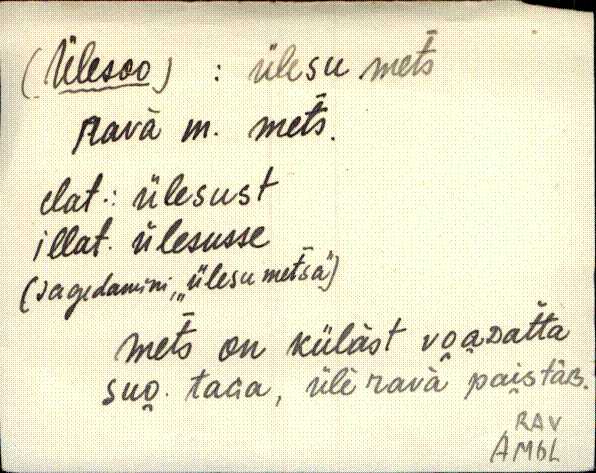 (Ülesoo) : ülesu met̄s
ravà m. met̄s.
elat.: ülesust
illat. ülesusse
(sagedamini „ülesu met̄sa")
met̄s on külàst voaᴅat̄ta
suo. taGa, ülè ravà paistàB.
RAV
AMbL